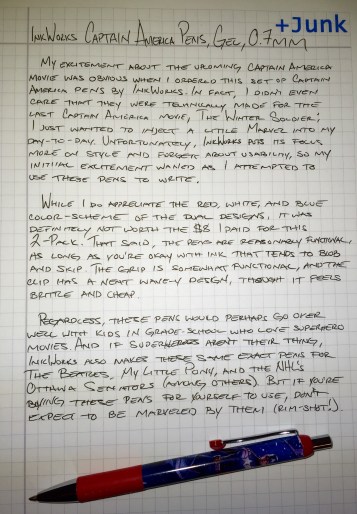 +Junk
InkWorks Captain America Pens, Gel, 0.7mm
My excitement about the upcoming Captain America
movie was obvious when I ordered this set of Captain
America pens by InkWorks. In fact, I didn't even
care that they were technically made for the
last Captain America movie, The Winter Soldier;
I just wanted to inject a little Marvel into my
day-to-day. Unfortunately, InkWorks puts its focus
more on style and forgets about usability, so my
initial excitement waned as I attempted to
use these pens to write.
While I do appreciate the red, white, and blue
color-scheme of the dual designs, it was
definitely not worth the $8 I paid for this
2-pack. That said, the pens are reasonably functional,
as long as you're okay with ink that tends to blob
and skip. The grip is somewhat functional, and the
clip has a neat wavely design, though it feels
brittle and cheap.
Regardless, these pens would perhaps go over
well with kids in grade-school who love superhero
movies. And if superheroes aren't their thing,
InkWorks also makes these same exact pens for
The Beatles, My Little Pony, and the NHL's
Ottawa Senators (among others). But if you're
buying these pens for yourself to use, don't
expect to be marveled by them (rim-shot!).